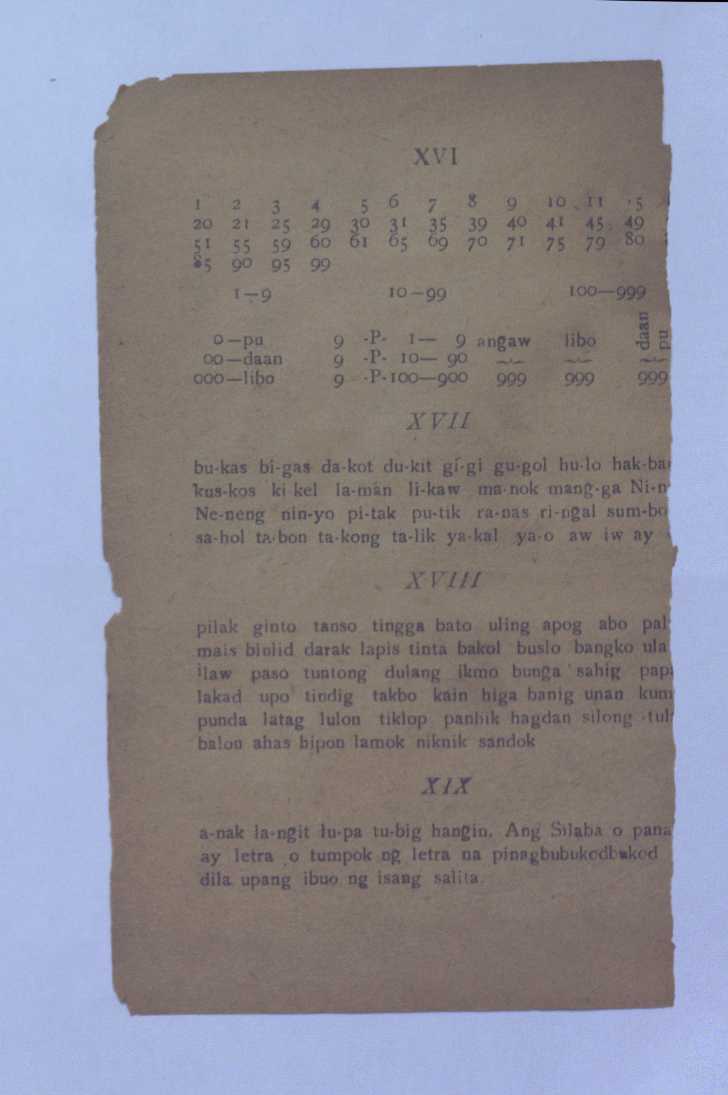 XVI
1 2 3 4 5 6 7 8 9 10 11 15
20 21 25 29 30 31 35 39 40 41 45 49
51 55 59 60 61 65 69 70 71 75 79 80
85 90 95 99
1—9 10—99 100—999
0—pu 9 -P- 1— 9 angaw libo daan pu
00—daan 9 -P- 10— 90
000—libo 9 -P-100—900 999 999 999
XVII
bu-kas bi-gas da-kot du-kit gí-gi gu-gol hu-lo
kus-kos ki-kel la-man li-kaw ma-nok mang̃-ga
Ne-neng nin-yo pi-tak pu-tik ra-nas ri-ng̃al
sa-hol ta-bon ta-kong ta-lik ya-kal ya-o aw iw ay
XVIII
pilak ginto tanso tingga bato uling apog abo
mais binlid darak lapis tinta bakol buslo bangko
ilaw paso tuntong dulang ikmo bung̃a sahig
lakad upo tindig takbo kain higa banig unan
punda latag lulon tiklop panhik hagdan silong
balon ahas hipon lamok niknik sandok
XIX
a-nak la-ng̃it lu-pa tu-big hang̃in. Ang Silaba o
ay letra o tumpok ng̃ letra na pinagbubukodbukod
dila upang ibuo ng̃ isang salita.